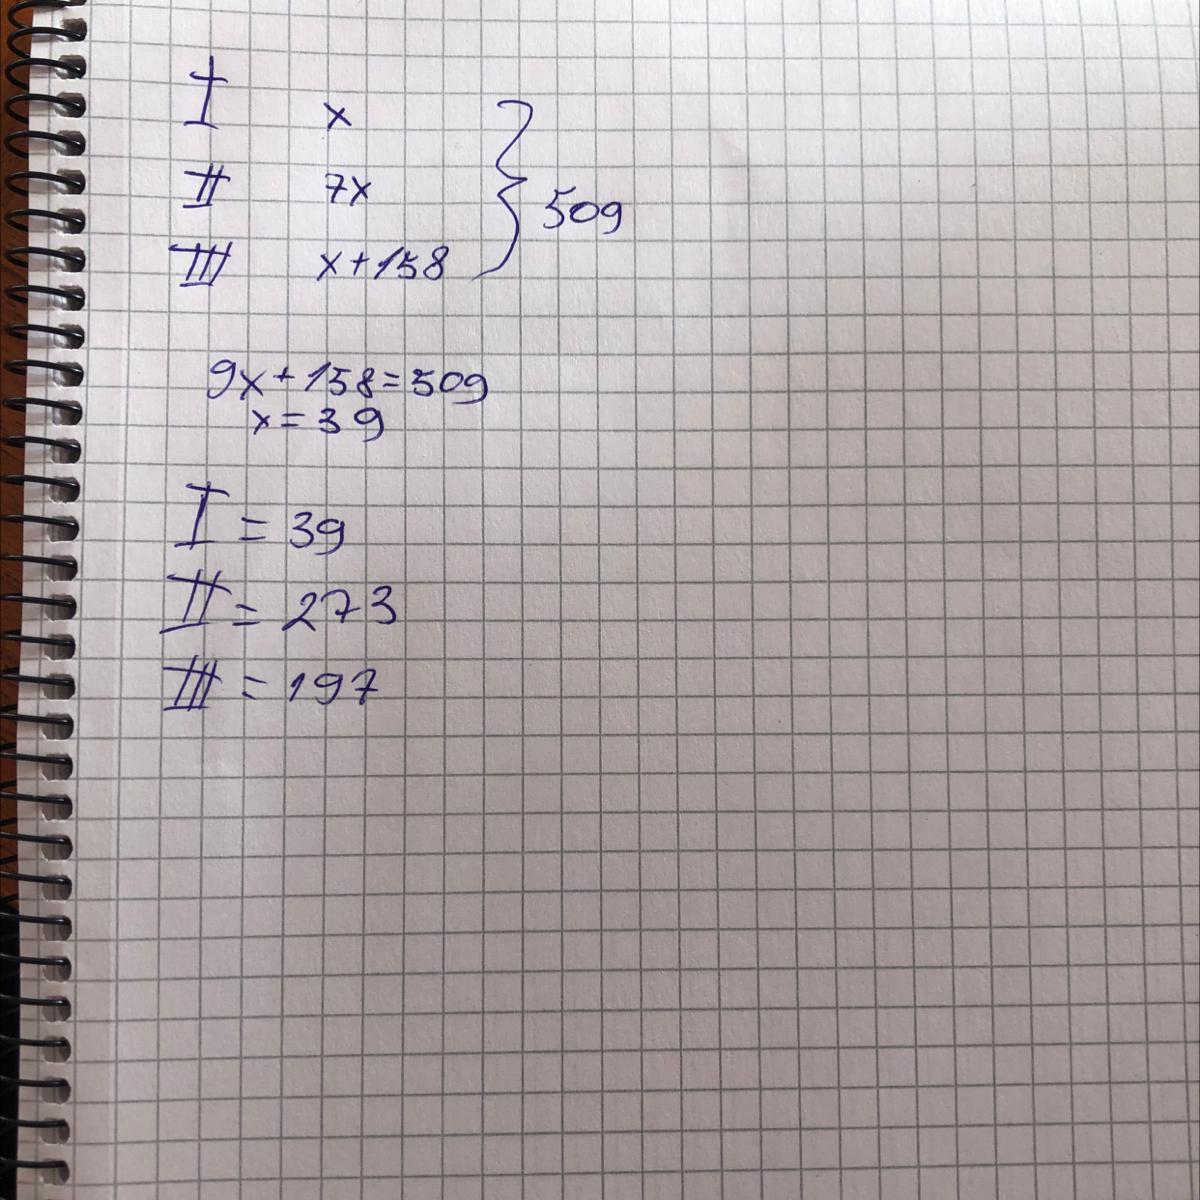 I x
II 7x
III x+158
} 509
9x+158=509
x=39
I = 39
II = 273
III = 197